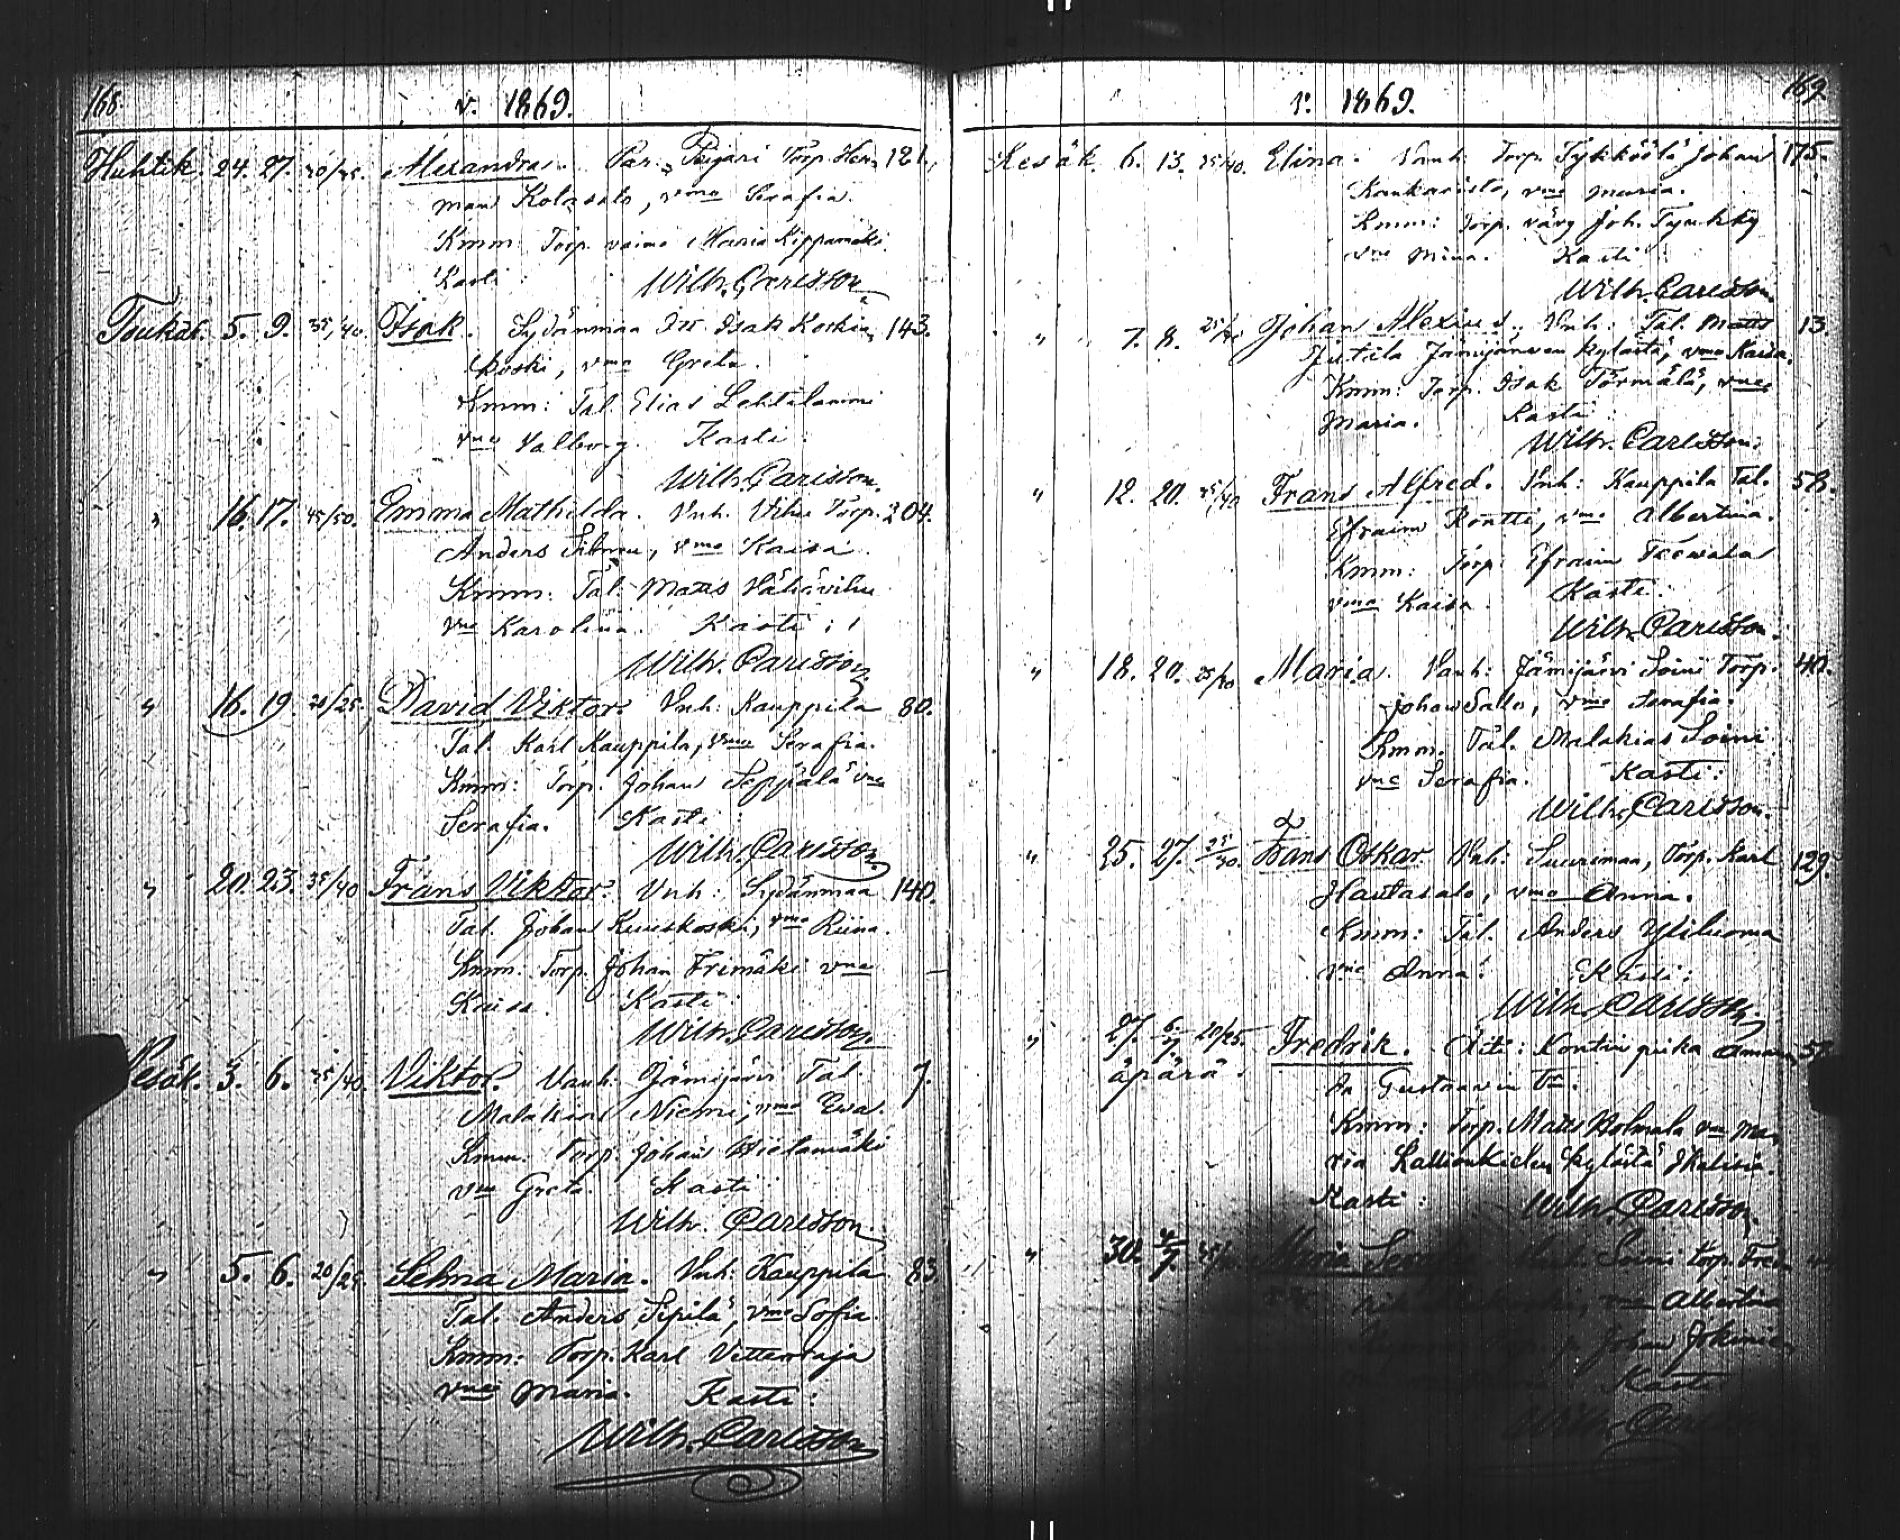 168.
v. 1869.
Huhtik. 24. 27. 30/35. Alexandra. Par: Peijari Torp. Her- 121.
man Kolasalo, vmo Serafia.
Kmm: Torp. vaimo Maria Kippamäki.
Kasti: Wilh. Carlsson
Toukok. 5. 9. 35/40. Isak. Sydänmaa Its. Isak Koskin- 143.
koski, vmo Greta.
Kmm: Tal. Elias Lehtilammi
vmo Valborg. Kasti:
Wilh. Carlsson.
" 16. 17. 45/50. Emma Mathilda. Vnh. Vihu Torp. 204.
Anders, vmo Kaisa.
Kmm: Tal. Matts Vähävihu
vmo Karolina. Kasti:
Wilh. Carlsson.
" 16. 19. 20/25. David Viktor. Vnh: Kauppila 80.
Tal. Karl Kauppila, vmo Serafia.
Kmm: Torp. Johan Seppälä vmo
Serafia. Kasti:
Wilh. Carlsson.
" 20. 23. 35/40 Frans Viktor. Vnh: Sydänmaa 140.
Tal. Johan Kuuskoski, vmo Riina.
Kmm. Torp. Johan vmo
Kaisa. Kasti:
Wilh. Carlsson.
Kesäk. 3. 6. 35/40. Viktor. Vanh. Jämijärvi Tal. 7.
Malakias Niemi, vmo Eva.
Kmm. Torp. Johan Hietamäki
vmo Greta. Kasti
Wilh. Carlsson.
" 5. 6. 20/25. Selma Maria. Vnh: Kauppila 83.
Tal. Anders Sipilä, vmo Sofia.
Kmm: Torp. Karl Vettenraja
vmo Maria. Kasti:
Wilh. Carlsson
169
v. 1869.
Kesäk. 6. 13. 35/40. Elina. Vanh. Torp. Tykköölä Johan 175.
Kankaristo, vmo Maria.
Kmm: Torp. vävy Joh. Tynkky
vmo Mina. Kasti:
Wilh. Carlsson.
" 7. 8. 25/30 Johan Alexius. Vnh: Tal. Matts 13.
Jutila Jämijärven kylästä, vmo Kaisa.
Kmm: Torp. Isak Törmälä, vmo
Maria. Kasti:
Wilh. Carlsson.
" 12. 20. 35/40 Frans Alfred. Vnh: Kauppila Tal. 58.
Efraim Röntti, vmo Albertina.
Kmm: Torp: Efraim
vmo Kaisa. Kasti:
Wilh. Carlsson.
" 18. 20. 25/30 Maria. Vanh: Jämijärvi Soini Torp. 40.
Johan Salo, vmo Serafia.
Kmm. Tal. Malakias Soini
vmo Serafia. Kasti:
Wilh. Carlsson.
" 25. 27. 25/30. Frans Oskar. Vnh: Suurimaa, Torp. Karl 129.
Hautasalo, vmo Anna.
Kmm: Tal. Anders Yliluoma
vmo Anna. Kasti:
Wilh. Carlsson.
" 27. 6/7 20/25. Fredrik. Äiti: Kontin piika Aman-
äpärä. da Gustaavin Tr.
Kmm: Torp. Matts Holmala vmo Ma-
ria kylästä Ikalisia.
Kasti: Wilh. Carlsson.
" 30. 4/7. Maria Soini torp.
vmo Albertina
Johan
Kasti
Wilh. Carlsson